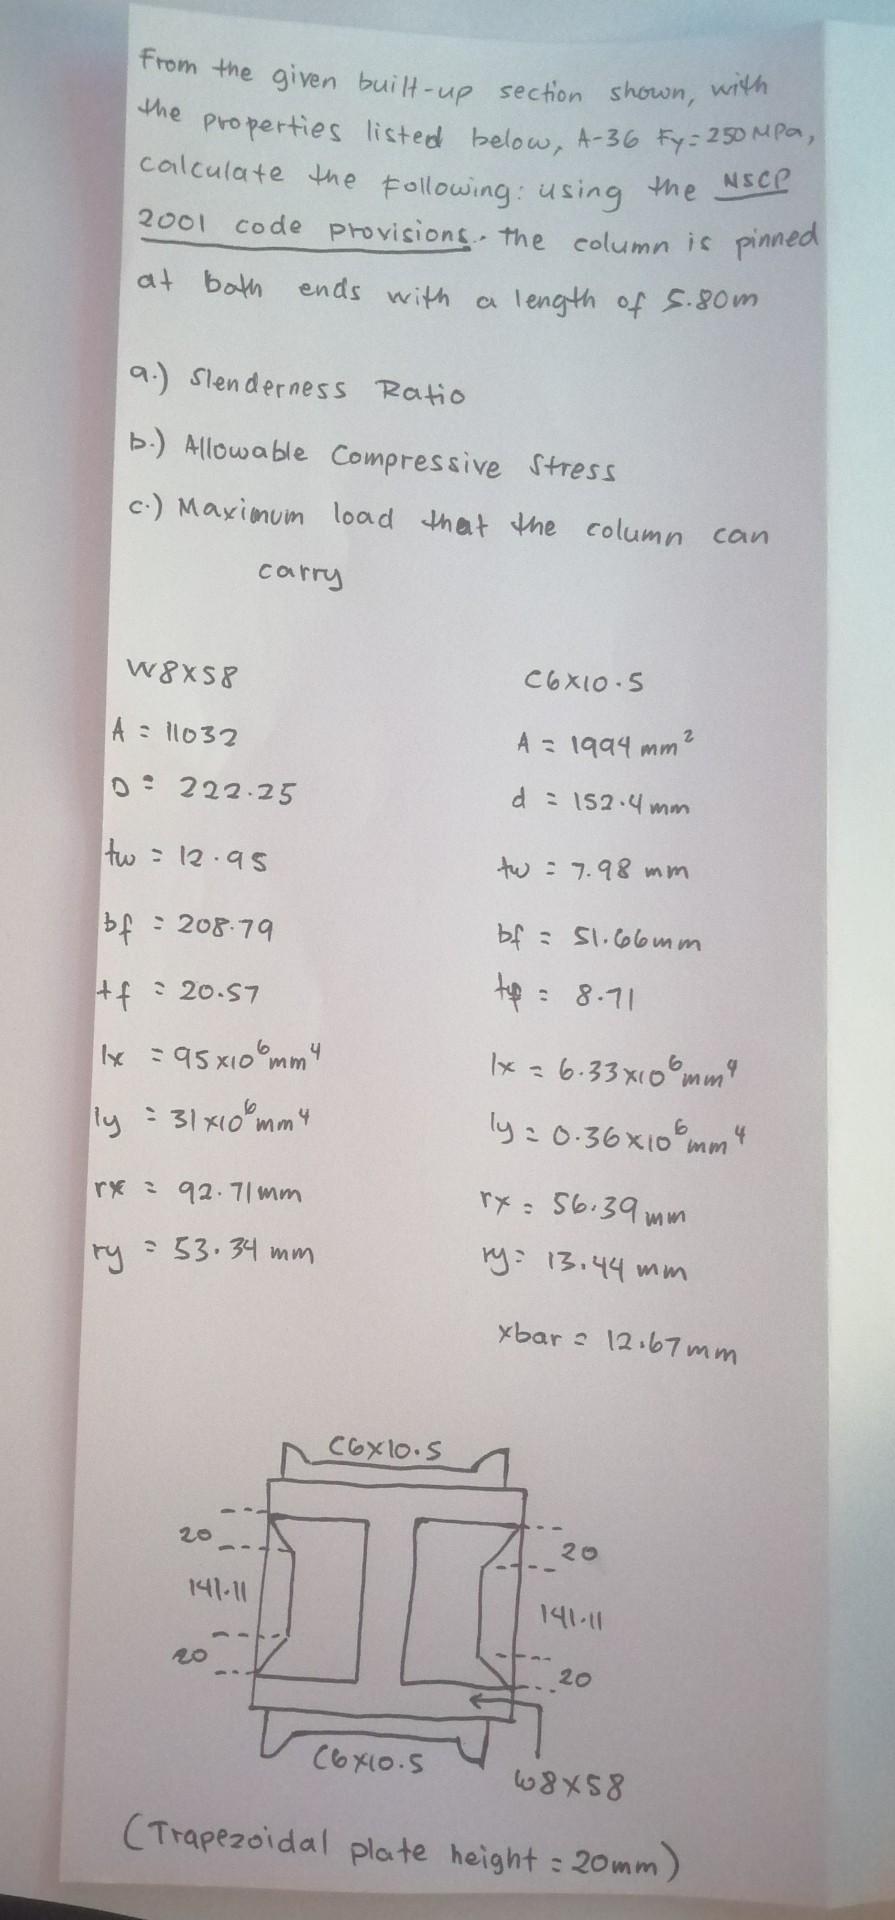 From the given built-up section shown, with
the properties listed below, A-36 Fy=250MPa,
calculate the Following: using the NSCP
2001 code provisions. the column is pinned
at both ends with a length of 5.80m
a.) Slenderness Ratio
b.) Allowable Compressive Stress
c.) Maximum load that the column can
carry
W8X58
A = 11032
D = 222.25
tw = 12.95
bf = 208.79
tf = 20.57
Ix = 95x10⁶mm⁴
Iy = 31x10⁶mm⁴
rx = 92.71mm
ry = 53.34 mm
C6X10.5
A = 1994 mm²
d = 152.4mm
tw = 7.98 mm
bf = 51.66mm
tf = 8.71
Ix = 6.33x10⁶mm⁴
Iy = 0.36x10⁶mm⁴
rx = 56.39mm
ry = 13.44 mm
xbar = 12.67mm
C6X10.5
20
141.11
20
20
141.11
20
C6X10.5
W8X58
(Trapezoidal plate height = 20mm)